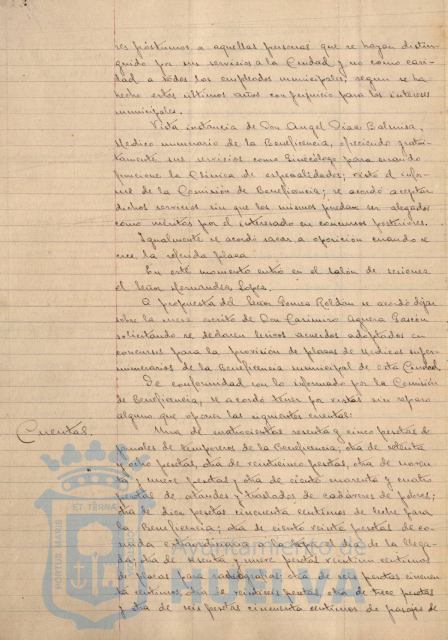 res póstumos a aquellas personas que se hayan distin-
guido por sus servicios a la Ciudad y no como cari-
dad a todos los empleados municipales, segun se ha
hecho estos ultimos años con perjuicio para los intereses
municipales.
Vista instancia de Don Angel Diaz
Médico numerario de la Beneficencia, ofreciendo gratui-
tamente sus servicios como Ginecólogo para cuando
funcione la Clinica de especialidades; visto el infor-
me de la Comisión de Beneficencia; se acordó aceptar
dichos servicios sin que los mismos puedan ser alegados
como méritos por el interesado en concursos posteriores.
Igualmente se acordó sacar a oposicion cuando se
cree la referida plaza
En este momento entró en el salón de sesiones
el Señor Hernandez Lopez.
A propuesta del Señor Gomez Roldán se acordó dejar
sobre la mesa escrito de Don Casimiro
solicitando se declaren acuerdos adoptados en
concursos para la provisión de plazas de Medicos super-
numerarios de la Beneficencia municipal de esta Ciudad.
De conformidad con lo informado por la Comisión
de Beneficencia, se acordó tener por vistas sin reparo
alguno que oponer las siguientes cuentas:
Cuentas. Una de cuatrocientas sesenta y cinco pesetas de
jornales de temporeros de la Beneficencia; otra de setenta
y ocho pesetas, otra de veinticinco pesetas, otra de noven
ta y nueve pesetas y otra de ciento noventa y cuatro
pesetas de ataudes y traslados de cadáveres de pobres;
otra de diez pesetas cincuenta centimos de leche para
la Beneficencia; otra de ciento veinte pesetas de co-
mida extraordinaria a el dia de la
otra de sesenta y nueve pesetas veintiun centimos
de placas para radiografias; otra de seis pesetas cincuen
ta centimos, otra de veintiseis pesetas, otra de trece pesetas
y otra de seis pesetas cincuenta centimos de pasajes de
PORTUS MARIS ET TERRAE CUSTODIA
Ayuntamiento de
HUELVA